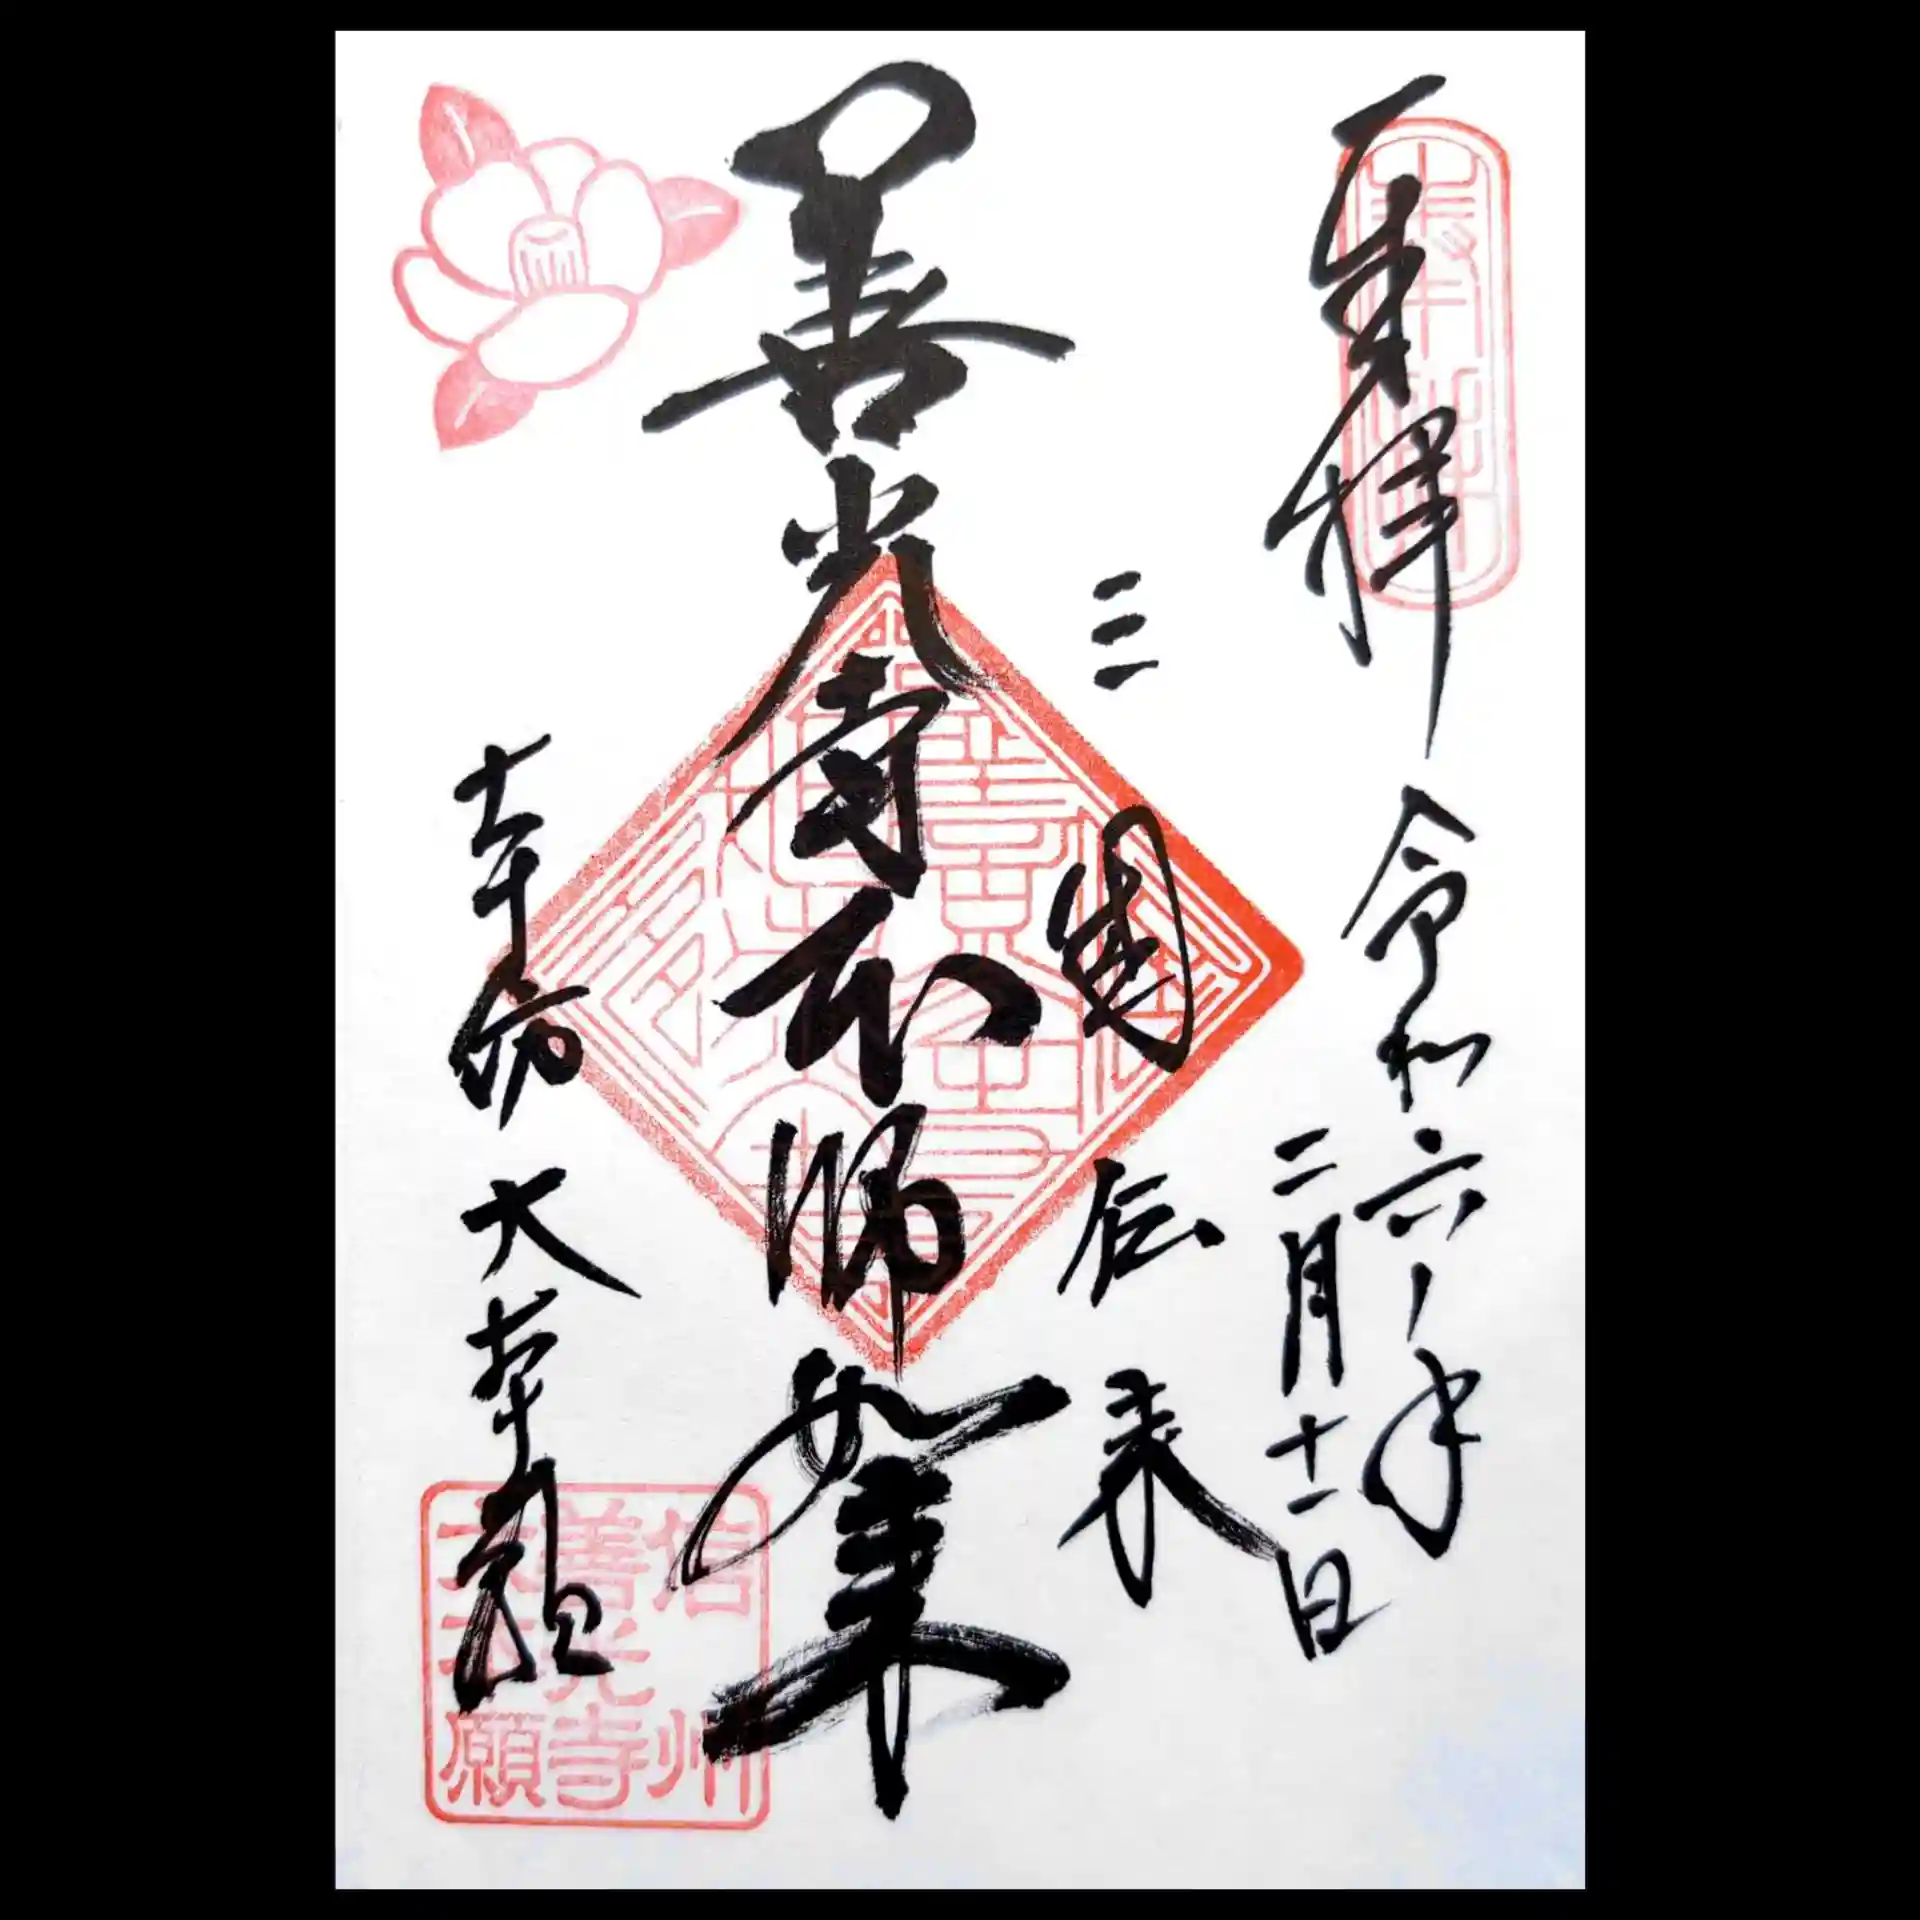 奉拝
令和六年
二月十一日
三国伝来
善光寺本師如来
本坊 大本願
信州
善光寺
大本願